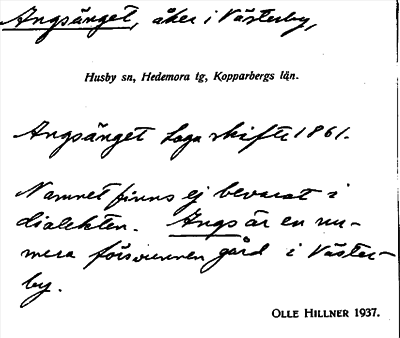 Angsänget, åker i Västerby,
Husby sn, Hedemora tg, Kopparbergs län.
Angsänget Laga skifte 1861.
Namnet finns ej bevarat i
dialekten. Angs är en nu-
mera försvunnen gård i Väster-
by.
OLLE HILLNER 1937.